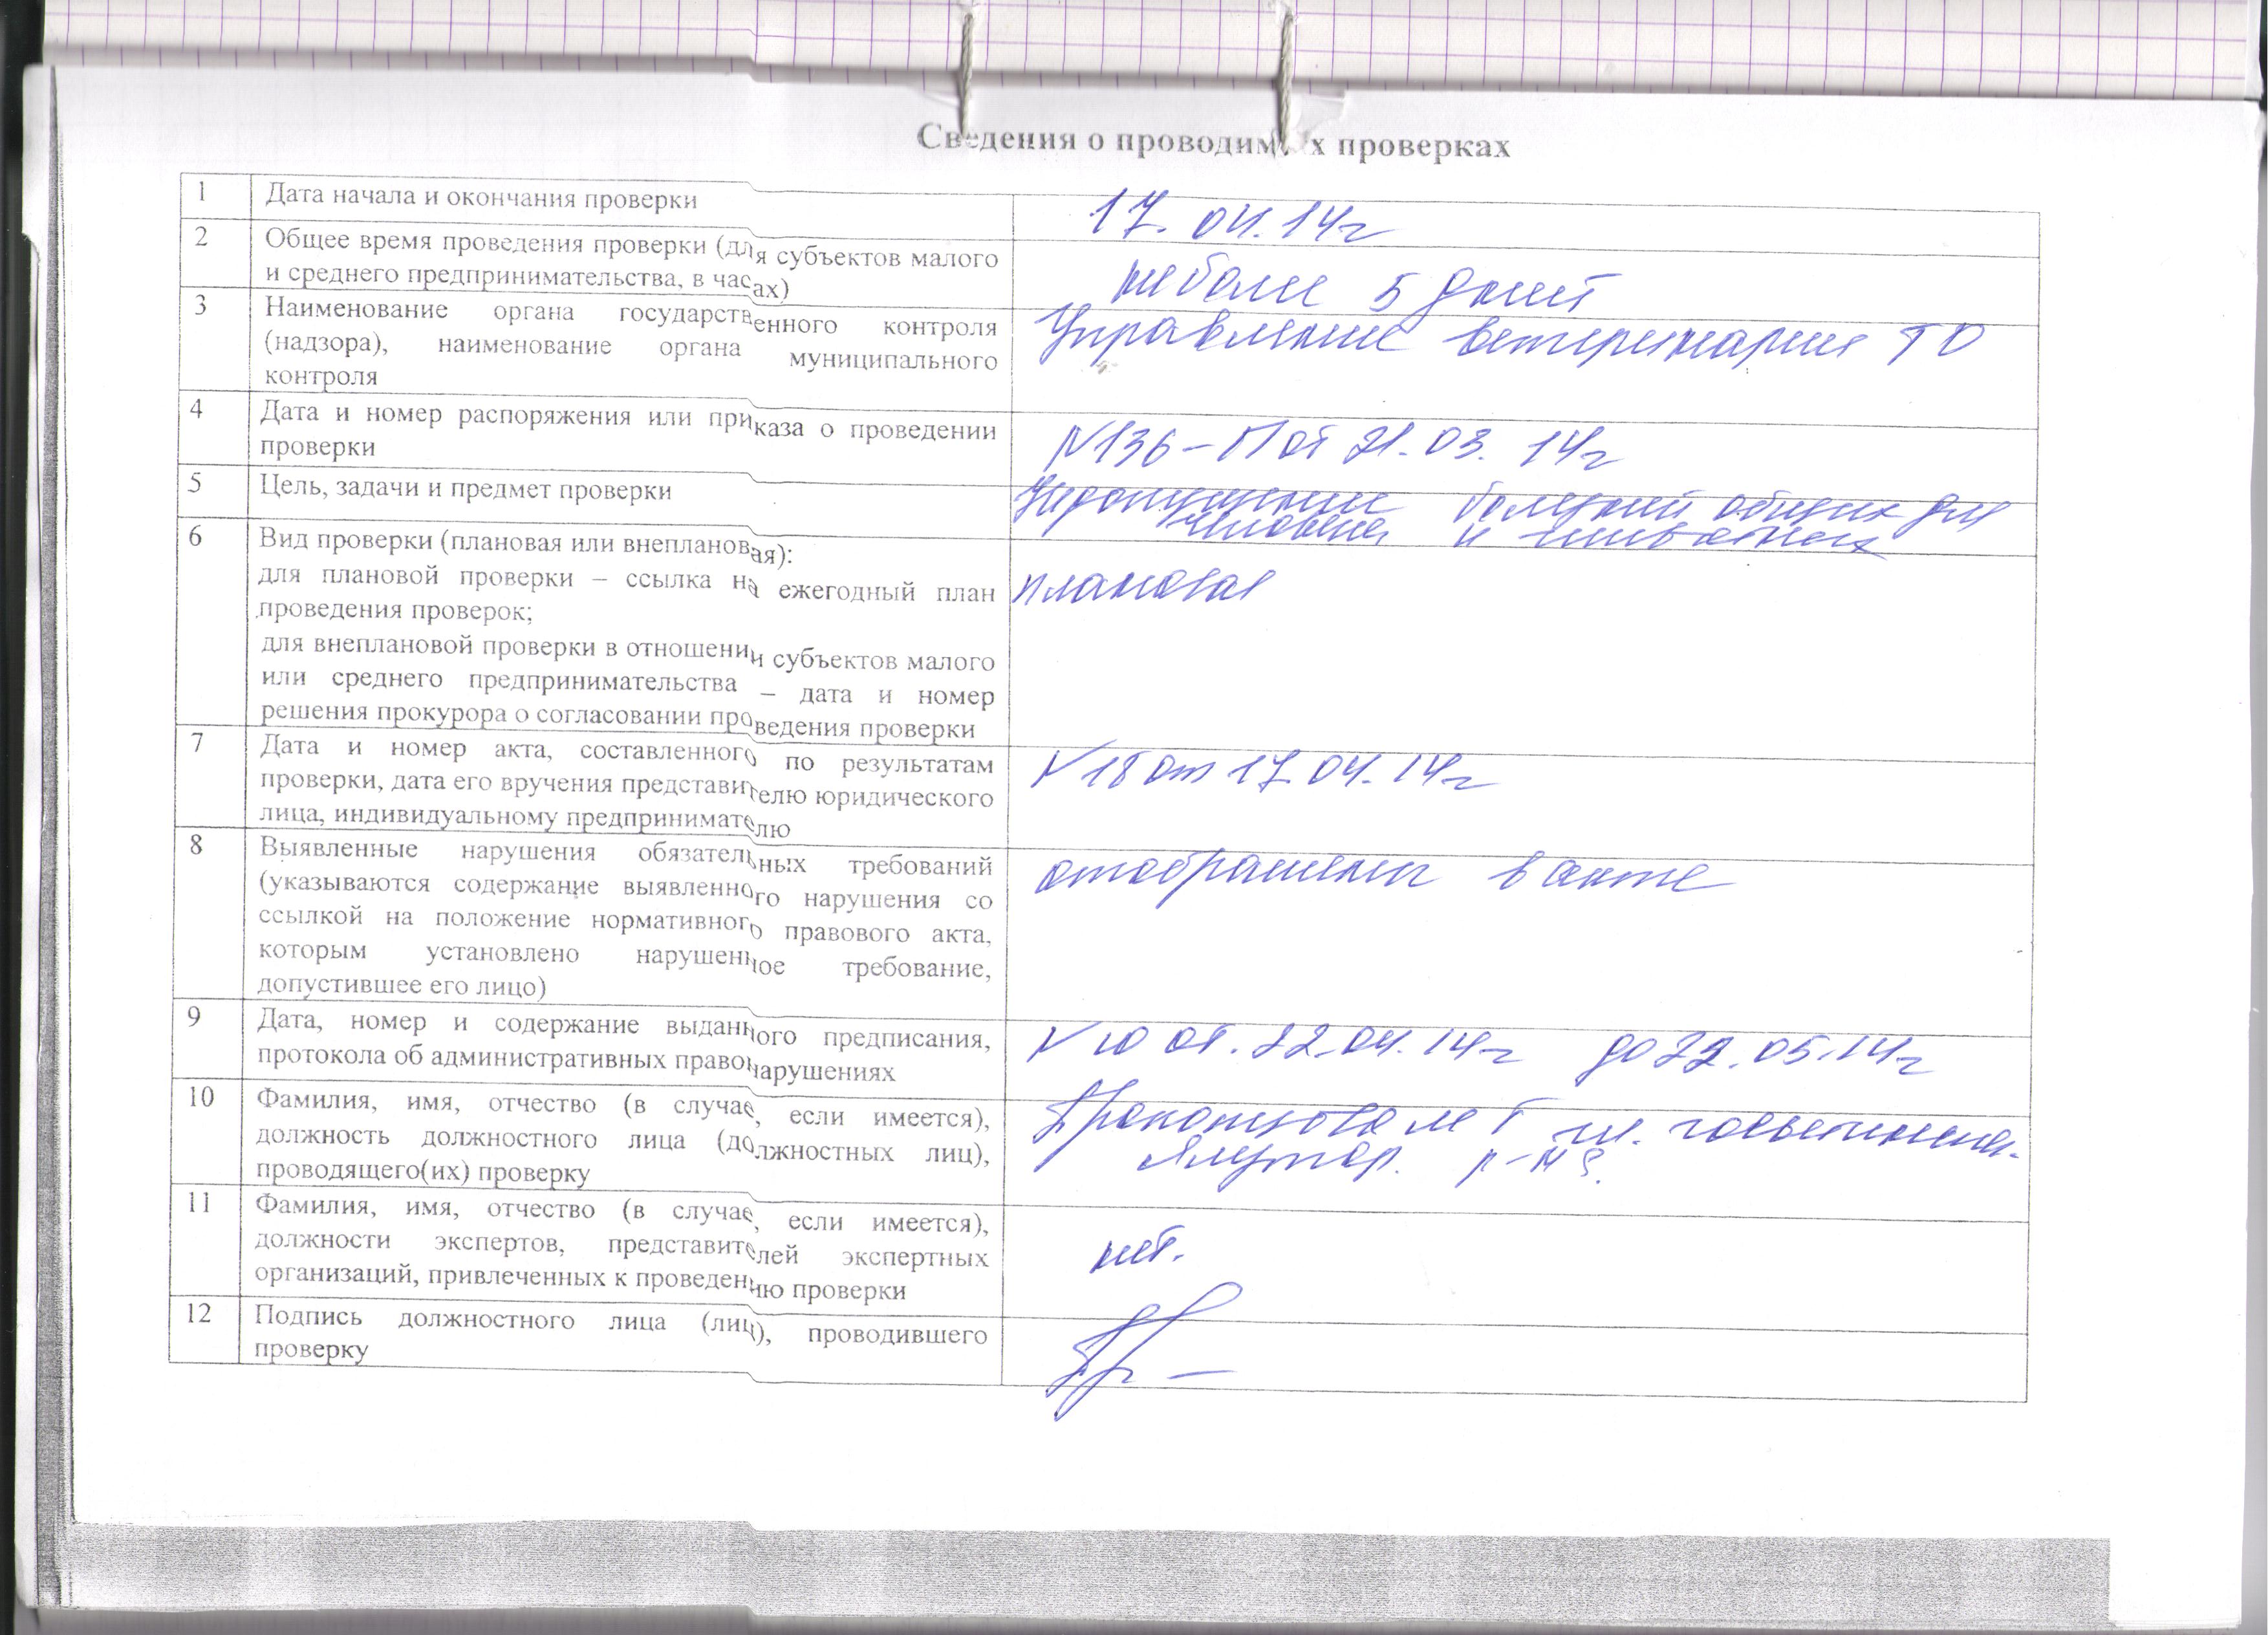 Сведения о проводимых проверках
1 Дата начала и окончания проверки 17.04.14г
2 Общее время проведения проверки (для субъектов малого
и среднего предпринимательства, в часах) не более 5 дней
3 Наименование органа государственного контроля Управление ветеринарии ТО
(надзора), наименование органа муниципального
контроля
4 Дата и номер распоряжения или приказа о проведении
проверки N136-П от 21.03.14г
5 Цель, задачи и предмет проверки болезней общих для
человека и животных
6 Вид проверки (плановая или внеплановая):
для плановой проверки – ссылка на ежегодный план плановая
проведения проверок;
для внеплановой проверки в отношении субъектов малого
или среднего предпринимательства – дата и номер
решения прокурора о согласовании проведения проверки
7 Дата и номер акта, составленного по результатам N18 от 17.04.14г
проверки, дата его вручения представителю юридического
лица, индивидуальному предпринимателю
8 Выявленные нарушения обязательных требований отображены в акте
(указываются содержание выявленного нарушения со
ссылкой на положение нормативного правового акта,
которым установлено нарушенное требование,
допустившее его лицо)
9 Дата, номер и содержание выданного предписания, N10 от. 22.04.14г до 22.05.14г
протокола об административных правонарушениях
10 Фамилия, имя, отчество (в случае, если имеется), гл. госветинспек.
должность должностного лица (должностных лиц), Ялутор. р-на
проводящего(их) проверку
11 Фамилия, имя, отчество (в случае, если имеется),
должности экспертов, представителей экспертных нет.
организаций, привлеченных к проведению проверки
12 Подпись должностного лица (лиц), проводившего
проверку